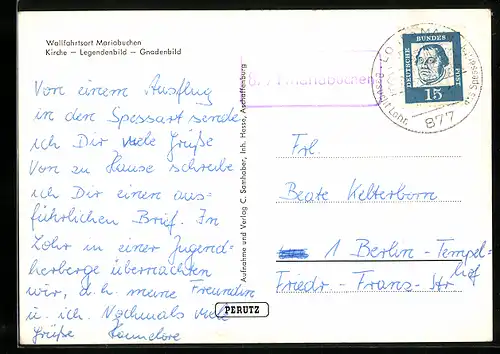 Wallfahrtsort Mariabuchen
Kirche — Legendenbild — Gnadenbild
Von einem Ausflug
in den Spessart sende
ich Dir viele Grüße
Von zu Hause schreibe
ich Dir einen aus-
führlichen Brief. In
Lohr in einer Jugend-
herberge übernachten
wir, d.h. meine Freundin
u. ich. Nochmals viele
Grüße Hannelore
Aufnahme und Verlag C. Samhaber, Inh. Hesse, Aschaffenburg
PERUTZ
Mariabuchen
DEUTSCHE BUNDESPOST
15
877
Frl.
Beate Kelterborn
1 Berlin - Tempel-
hof
Friedr - Franz - Str